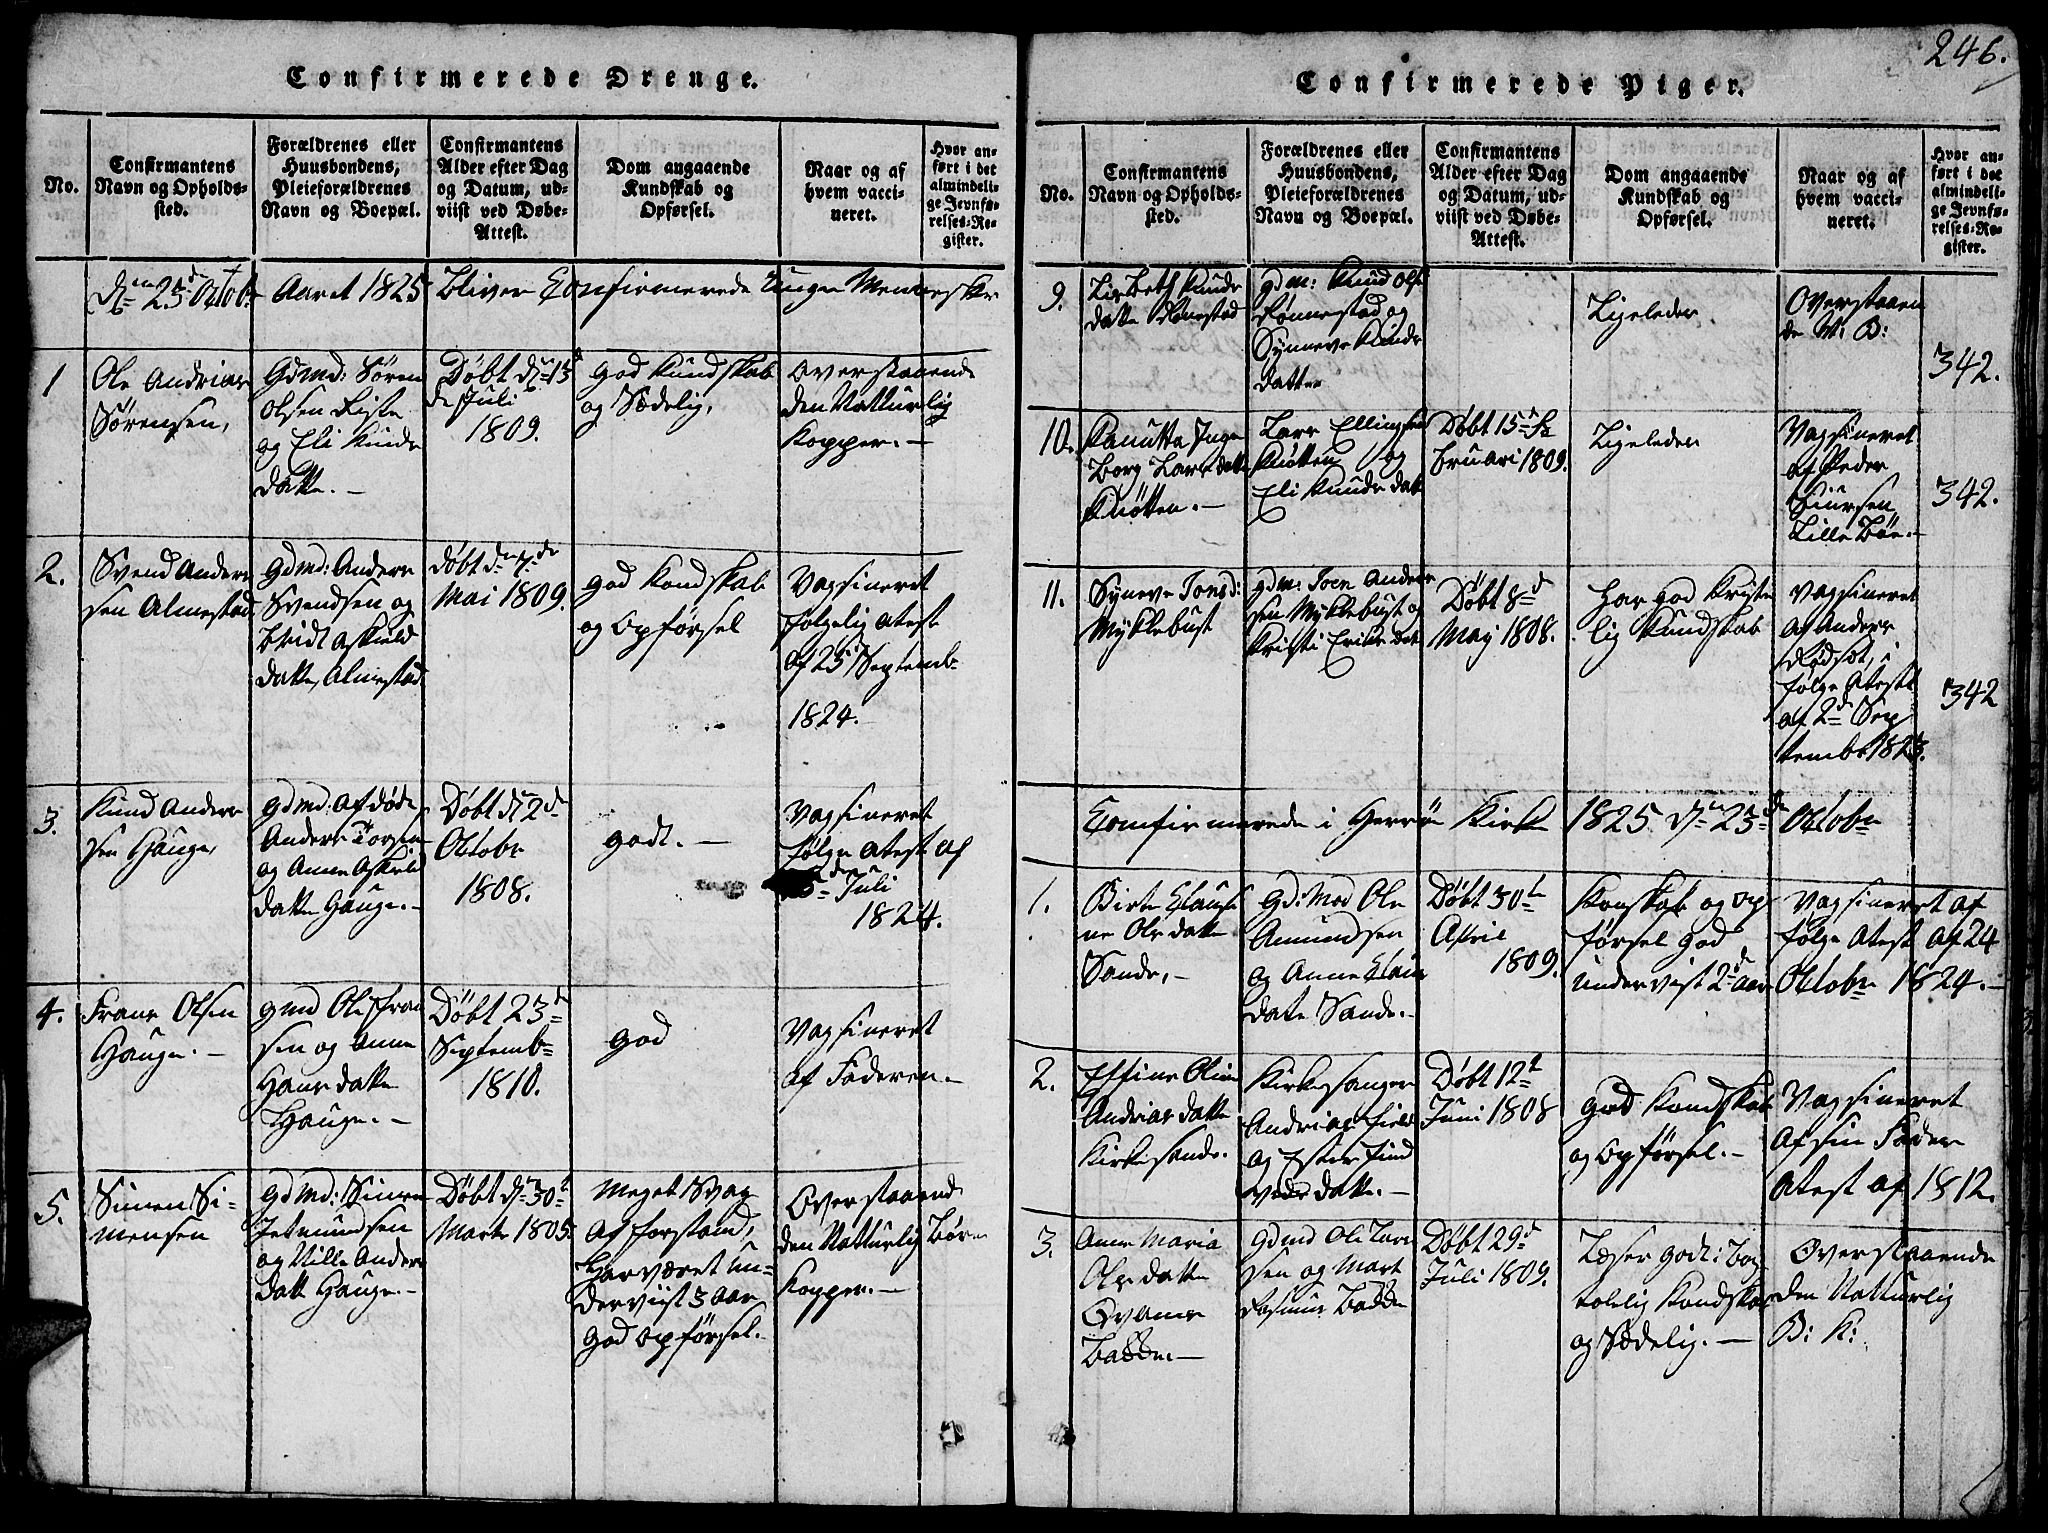 Confirmerede Drenge.
No.
Confirmantens
Navn og Opholds-
sted.
Forældrenes eller
Huusbondens,
Pleieforældrenes
Navn og Boepæl.
Confirmantens
Alder efter Dag
og Datum, ud-
viist ved Døbe-
Attest.
Dom angaaende
Kundskab og
Opførsel.
Naar og af
hvem vacci-
neret.
Hvor an-
ført i det
almindeli-
ge Jevnfø-
relses-Re-
gister.
Aaret 1825 Bliver Confirmerede Unge Menneske
1
Ole Andrias
Sörensen,
Gdmd: Sören
Olsen Riste
og Eli Knuds
datte. -
Döbt dn 13d
Juli
1809.
god Kundskab
og Sædelig,
Overstaaende
den Natturlig
Kopper. -
2.
Svend Anders
sen Almestad
Gdmd: Anders
Svendsen og
datte, Almestad
döbt dn 7de
Mai 1809.
god Kondskab
og Opförsel
Vagsineret
følgelig Atest
af 25 Septemb
1824.
3.
Knud Anders
sen Hauge,
Gdmd: Af døde
Anders Torsen
og Anne Askeld
datte Hauge. -
Döbt dn 2d
Oktobr
1808.
godt. -
Vagsineret
følge Atest af
Juli
1824.
4.
Frans Olsen
Hauge. -
gmd Ole Fran
sen og Anne
Hans datte
Hauge. -
Döbt 23d
Septemb
1810.
god
Vagsineret
af Faderen. -
5.
Simen Si-
mensen
Gdmd: Simen
Jetmundsen
og Nille Anders
datt Hauge. -
Döbt dn 30t
Marts 1805.
Meget Svag
Af forstand,
Har været un-
derviist 3 aar
god Opförsel.
Overstaaend
den Natturlig Börn
Kopper. -
246.
Confirmerede Piger.
No.
Confirmantens
Navn og Opholds-
sted.
Forældrenes eller
Huusbondens,
Pleieforældrenes
Navn og Boepæl.
Confirmantens
Alder efter Dag
og Datum, ud-
viist ved Døbe-
Attest.
Dom angaaende
Kundskab og
Opførsel.
Naar og af
hvem vacci-
neret.
Hvor an-
ført i det
almindeli-
ge Jevnfø-
relses-Re-
gister.
9.
Lisbeth Knuds
datte Rönestad
gdm: Knud Ols
Rönnestad og
Synneve Knuds
datter
Ligeledes
Overstaaen
de N: B:
342.
10.
Ranutta Inge
borg Lars datte
Knötten. -
Lars Ellingsen
Knötten og
Eli Knuds datt
Döbt 15d Fe
bruari 1809.
Ligeledes
Vagsineret
af Peder
Siursen
Lille Böe. -
342.
11.
Syneve Jons d:
Myklebust
gdm: Joen Anders
sen Myklebust og
Kristi Eriks dat
Döbt 8d
May 1808.
Har god Kriste
lig Kundskab
Vagsineret
af Anders
Rödset, i
følge Atest
af 2d Sep
tembr 1823.
342
Comfirmerede i Herrö Kirke 1825 dn 23de Oktobr
1.
Birte Claus
ne Ols datte
Sande, -
Gd: Md Ole
Amundsen
og Anne Claus
date Sande. -
Döbt 30t
April
1809.
Konskab og op
försel god
undervist 2d aar
Vagsineret af
følge Atest af 24
Oktobr 1824. -
2.
Elfine Oline
Andrias datte
Kirkesande.
Kirkesanger
Andrias Field
og Ester Find
veds datte. -
Döbt 12t
Juni 1808
god Kondskab
og Opförsel. -
Vagsineret
af sin Fader
Atest af 1812.
3.
Anne Maria
Ols datte
Qvams
Gdmd Ole Lars
sen og Mart
Rasmus
Döbt 29d
Juli 1809.
Læser godt: bog
tolelig Kondskab
og Sædelig. -
Overstaaende
den Natturlig
B: K: